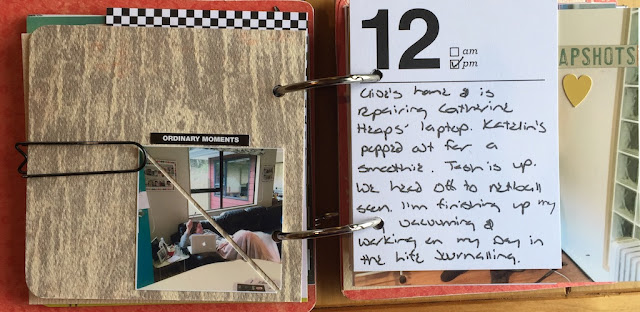 ORDINARY MOMENTS
12
am
pm
Clive's home & is
repairing Catherine
Heaps' laptop. Katelin's
popped out for a
smoothie. Tash is up.
We head off to netball
soon. I'm finishing up my
vacuuming &
working on my Day in
the Life Journalling.
APSHOTS